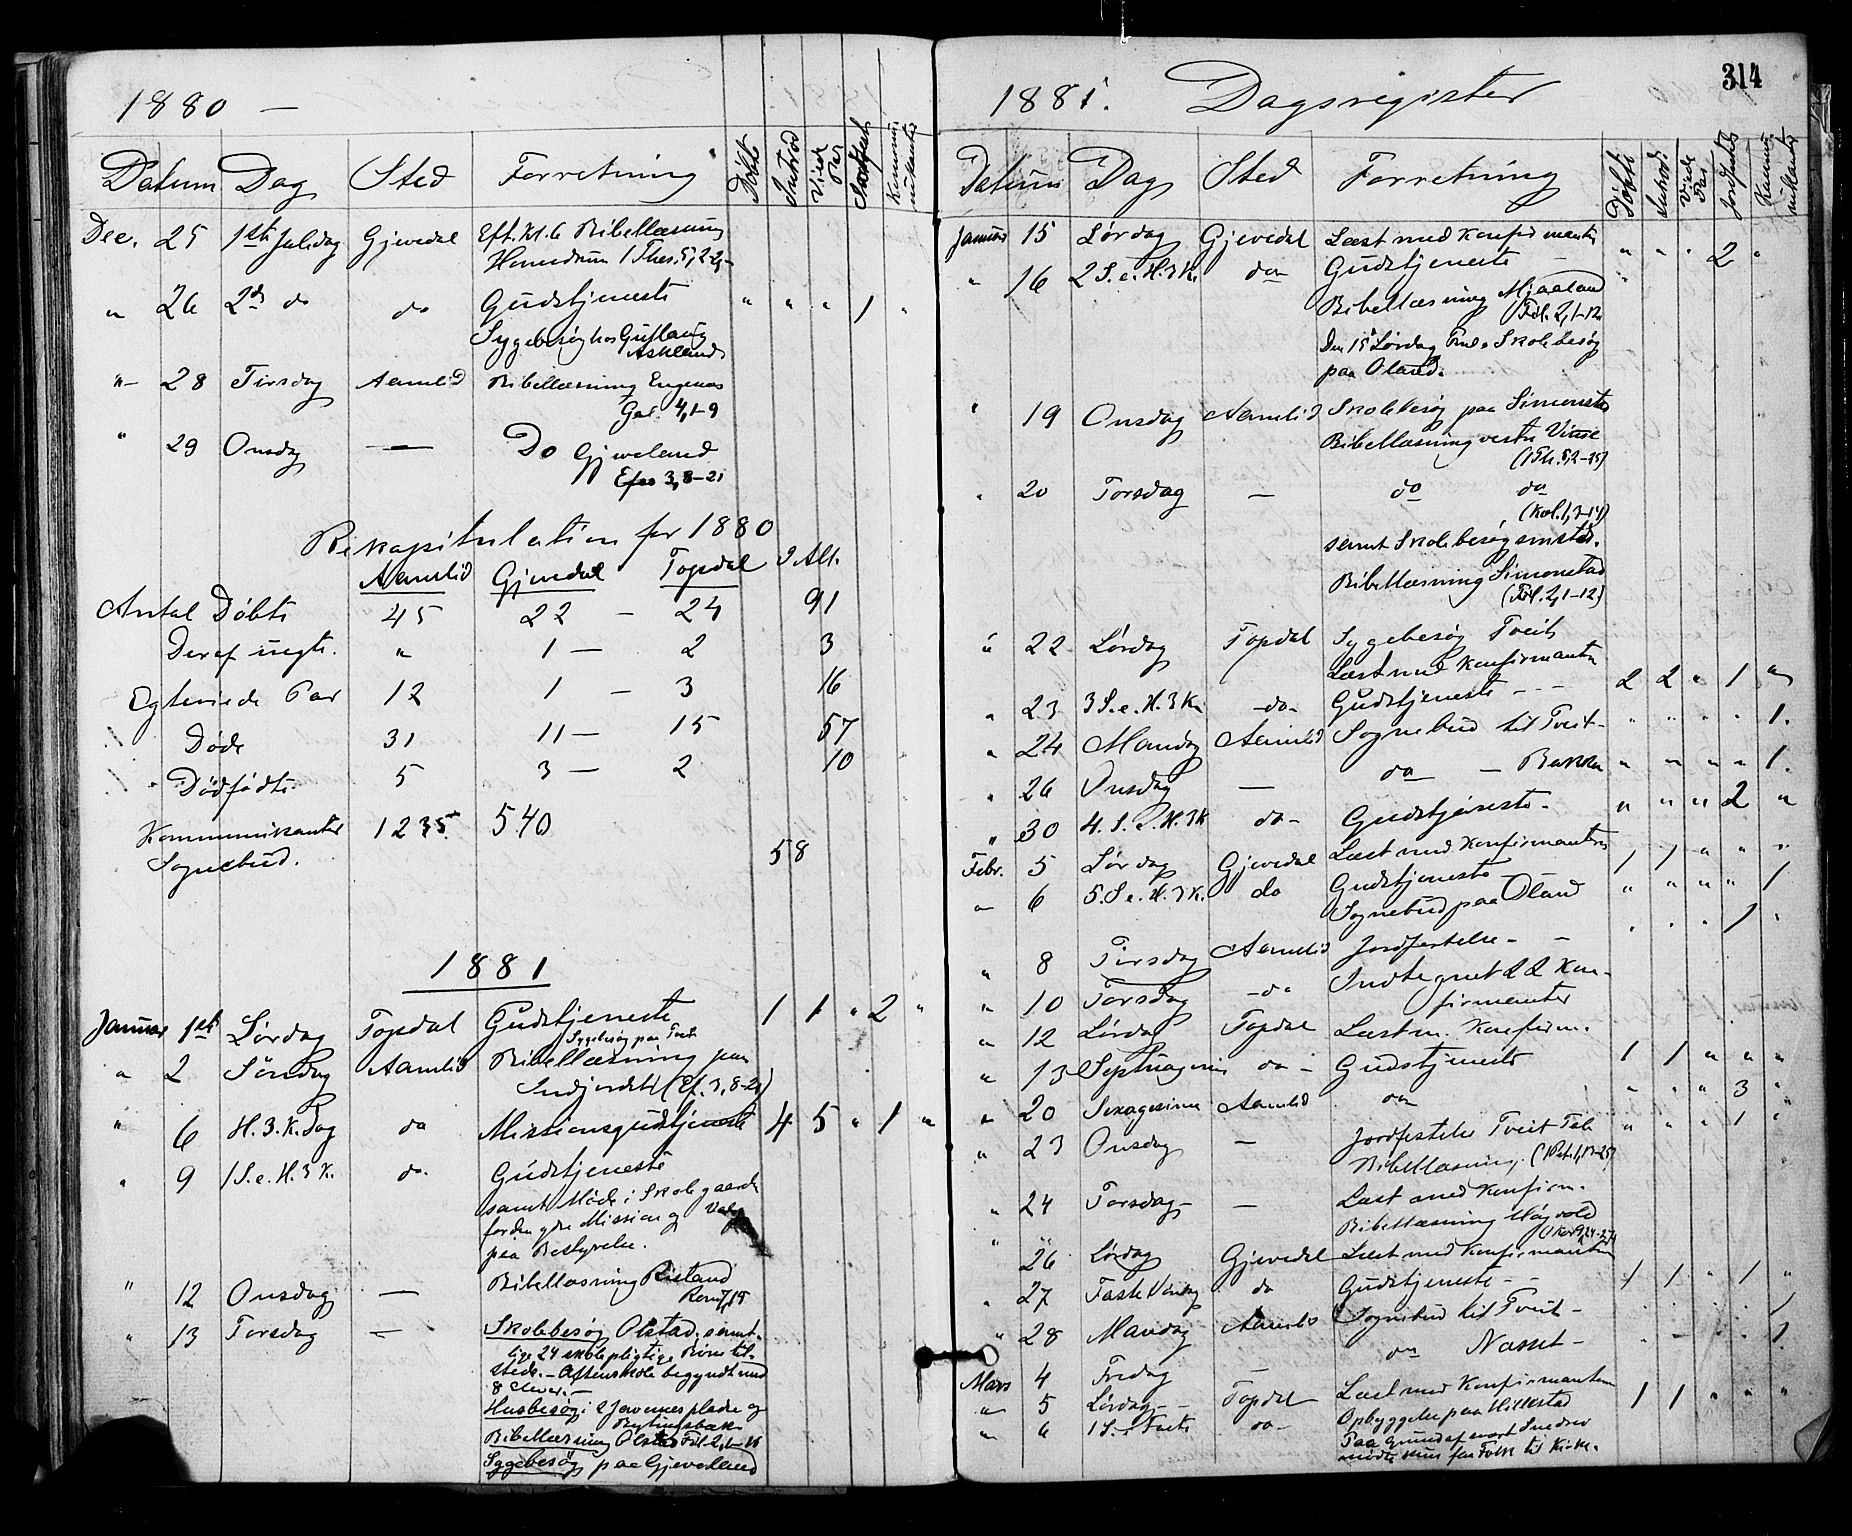 1880 —
Datum Dag Sted Forretning Døbte Introd Viede Par Jordfæst Kommunikanter
Dec. 25 1ste Juledag Gjevedal Eft. Kl. 6 Bibellæsning
1 Thes. 5, 2-2
" 26 2den do do Gudstjeneste " " " 1 "
Sygebesøg hos Guslaug
Askland
"– 28 Tirsdag Aamlid Bibellæsning Engenæs
Gal. 4, 1-9
" 29 Onsdag — Do Gjeveland
Efes 3, 8-21
Rekapitulation for 1880
Aamlid Gjevedal Topdal I Alt.
Antal Døbte 45 22 — 24 91
Deraf uegte. " 1 — 2 3
Egteviede Par 12 1 — 3 16
Døde 31 11 — 15 57
Dødfødte 5 3 — 2 10
Kommunikanter 1235 540
Sognebud. 58
1881
Januar 1ste Lørdag Topdal Gudstjeneste 1 1 " 2 "
Sygebesøg paa Tveit
" 2 Søndag Aamlid Bibellæsning paa
(Ef. 3, 8-21)
" 6 H. 3. K. Dag do Missionsgudstjeneste 4 5 " 1 "
" 9 1 S. e. H. 3 K. do. Gudstjeneste
samt Møde i Skolegaarde
for den ydre Mission og Valg
paa Bestyrelse.
" 12 Onsdag — Bibellæsning Risland
Rom 7, 15
" 13 Torsdag — Skolebesøg Olstad, samt-
lige 24 skolepligtige Børn til-
stede. – Aftenskole begyndt med
8 Elever. –
Husbesøg i 2 Jævnesplads og
Rytingsbæk
Bibellæsning Olstad Fil. 2, 1-11
Sygebesøg paa Gjeveland
1881. Dagsregister
314
Datum Dag Sted Forretning Døbte Introd Viede Par Jordfæstede Kommunikanter
Januar 15 Lørdag Gjevedal Læst med Konfirmanter
" 16 2 S. e. H. 3 K. do– Gudstjeneste — " " " 2 "
Bibellæsning Mjaaland
Fil. 2, 1-12
Den 15 Lørdag Skolebesøg
paa Oland.
" 19 Onsdag Aamlid Skolebesøg paa Simonstad
Bibellæsning vestre Vinie
" 20 Torsdag — do do
(Kol. 1, 3-14)
samt Skolebesøg smstds.
Bibellæsning Simonstad
(Fil. 2, 1-12)
" 22 Lørdag Topdal Sygebesøg Tveit
Læst med Konfirmanter
" 23 3 S. e. H. 3 K. –do– Gudstjeneste – – – 2 2 " 1 "
" 24 Mandag Aamlid Sognebud til Tveit– " " " " 1.
" 26 Onsdag — do — Bakka " " " " 1.
" 30 4. S. e. H. 3 K do– Gudstjeneste– " " " 2 "
Febr. 5 Lørdag Gjevedal Læst med Konfirmanterne
" 6 5. S. e. H. 3 K. do Gudstjeneste 1 1 " " "
Sognebud paa Oland " " " " 1
" 8 Tirsdag Aamlid Jordfæstelse– – " " " 1 "
" 10 Torsdag –do Indtegnet 22 Kon-
firmanter
" 12 Lørdag Topdal Læst m. Konfirm.
" 13 Septuagesima do– Gudstjeneste 1 1 " " "
" 20 Sexagesima Aamlid do " " " 3 "
" 23 Onsdag — Jordfæstelse Tveit " " " 1 "
Bibellæsning. (1 Pet. 1, 13-25)
" 24 Torsdag– — Læst med Konfirm.
Bibellæsning Høgvold
(1 Kor 9, 24-27)
" 26 Lørdag Gjevedal Læst med Konfirmanterne
" 27 Faste Søndag do Gudstjeneste– – 1 1 " 1 "
" 28 Mandag Aamlid Sognebud til Tveit– " " " " 1
Mars 4 Fredag — do Næsset– " – " " 1.
" 5 Lørdag– – Topdal Læst med Konfirmanterne
" 6 1 S. i Faste do– Opbyggelse paa Hillestad 1 1 " " "
Paa Grund af svært Snedrev
mødte kun faa Folk til Kirke.